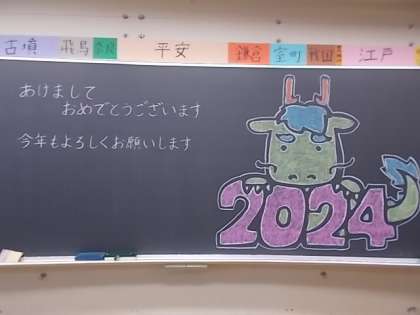 古墳 飛鳥 奈良 平安 鎌倉 室町 戦国 江戸
あけまして
おめでとうございます
今年もよろしくお願いします
2024